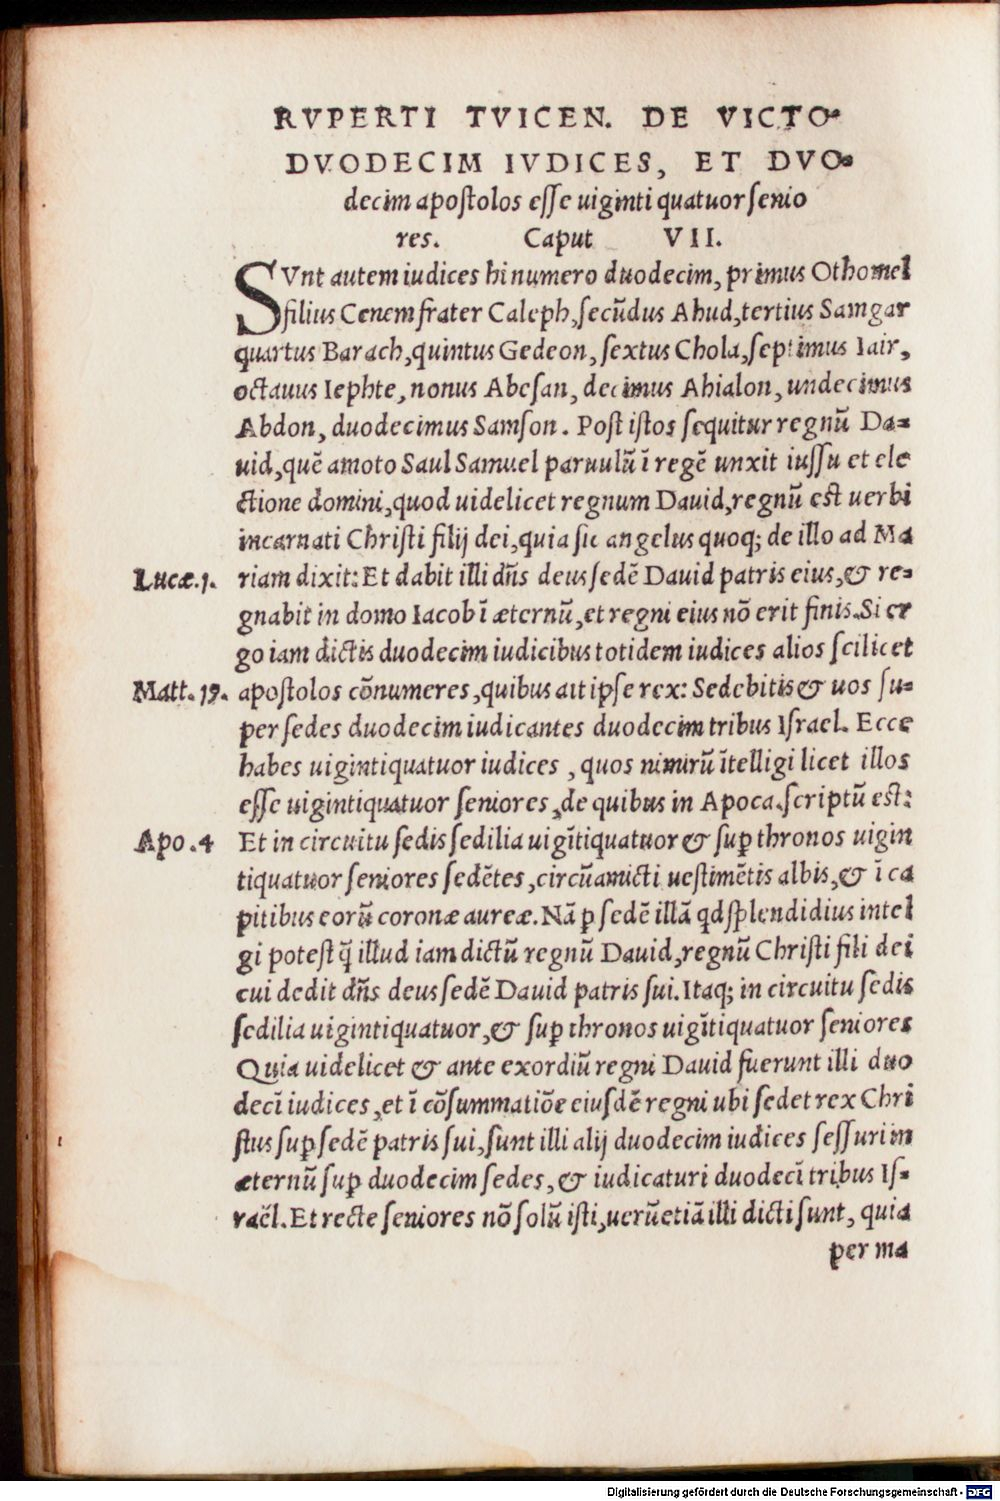 RVPERTI TVICEN. DE VICTO-
DVODECIM IVDICES, ET DVO-
decim apostolos esse uiginti quatuor senio
res. Caput VII.
SVnt autem iudices hi numero duodecim, primus Othomel
filius Cenem frater Caleph, secũdus Ahud, tertius Samgar
quartus Barach, quintus Gedeon, sextus Chola, septimus Iair,
octauus Iephte, nonus Abesan, decimus Ahialon, undecimus
Abdon, duodecimus Samson. Post istos sequitur regnũ Da-
uid, quẽ amoto Saul Samuel paruulũ ĩ regẽ unxit iussu et ele
ctione domini, quod uidelicet regnum Dauid, regnũ est uerbi
incarnati Christi filij dei, quia sic angelus quoq; de illo ad Ma
Lucæ.1. riam dixit: Et dabit illi dñs deus sedẽ Dauid patris eius, & re-
gnabit in domo Iacob ĩ æternũ, et regni eius nõ erit finis. Si er
go iam dictis duodecim iudicibus totidem iudices alios scilicet
Matt.19. apostolos cõnumeres, quibus ait ipse rex: Sedebitis & uos su-
per sedes duodecim iudicantes duodecim tribus Israel. Ecce
habes uigintiquatuor iudices, quos nimirũ ĩtelligi licet illos
esse uigintiquatuor seniores, de quibus in Apoca. scriptũ est:
Apo.4 Et in circuitu sedis sedilia uigĩtiquatuor & sup̱ thronos uigin
tiquatuor seniores sedẽtes, circũamicti uestimẽtis albis, & ĩ ca
pitibus eorũ coronæ aureæ. Nã p̱ sedẽ illã qd splendidius intel
gi potest q̃ illud iam dictũ regnũ Dauid, regnũ Christi fili dei
cui dedit dñs deus sedẽ Dauid patris sui. Itaq; in circuitu sedis
sedilia uigintiquatuor, & sup̱ thronos uigĩtiquatuor seniores
Quia uidelicet & ante exordiũ regni Dauid fuerunt illi duo
decĩ iudices, et ĩ cõsummatiõe eiusdẽ regni ubi sedet rex Chri
stus sup̱ sedẽ patris sui, sunt illi alij duodecim iudices sessuri in
æternũ sup̱ duodecim sedes, & iudicaturi duodecĩ tribus Is-
raẽl. Et recte seniores nõ solũ isti, uerũetiã illi dicti sunt, quia
per ma
Digitalisierung gefördert durch die Deutsche Forschungsgemeinschaft - DFG